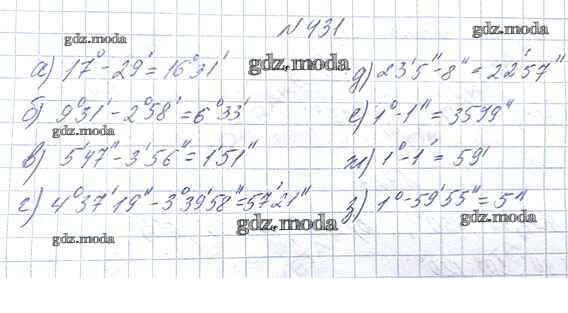 №431
gdz.moda
gdz.moda
а) 17° - 29' = 16°31'
gdz.moda
д) 23'5" - 8" = 22'57"
б) 9°31' - 2°58' = 6°33'
gdz.moda
е) 1° - 1" = 3599"
в) 5'47" - 3'56" = 1'51"
ж) 1° - 1' = 59'
г) 4°37'19" - 3°39'58" = 57'21"
з) 1° - 59'55" = 5"
gdz.moda
gdz.moda
gdz.moda